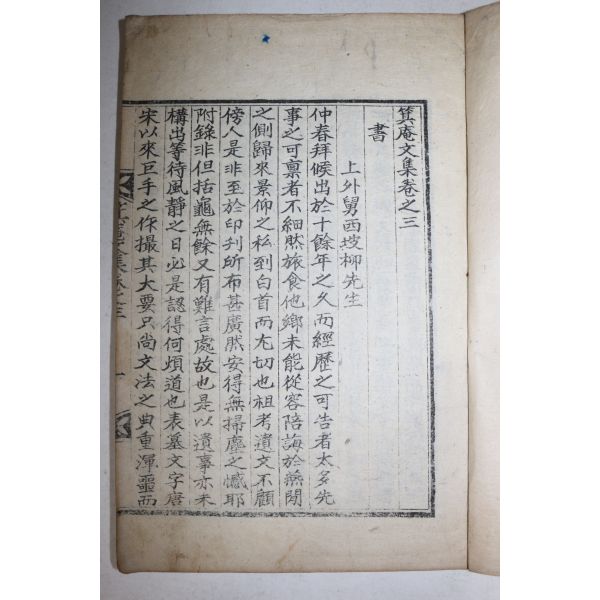 箕庵文集卷之三
書
上外舅西坡柳先生
仲春拜候出於十餘年之久而經歷之可告者太多先
事之可稟者不細然旅食他鄉未能從容陪誨於燕閒
之側歸來景仰之私到白首而尤切也祖考遺文不顧
傍人是非至於印刋所布甚廣然安得無掃塵之憾耶
附錄非但括龜無餘又有難言處故也是以遺事亦未
構出等待風靜之日必是認得何煩道也表墓文字唐
宋以來巨手之作撮其大要只尚文法之典重渾噩而
庵文集卷之三